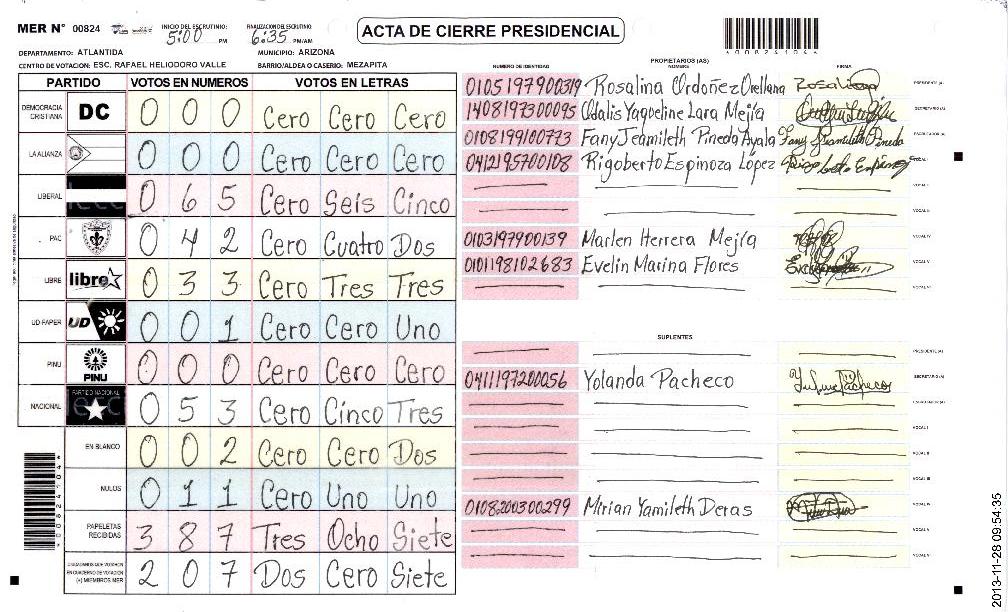 MER Nº 00824
INICIO DEL ESCRUTINIO: 5:00 PM
FINALIZACION DEL ESCRUTINIO: 6:35 PM/AM
ACTA DE CIERRE PRESIDENCIAL
DEPARTAMENTO: ATLANTIDA
MUNICIPIO: ARIZONA
CENTRO DE VOTACION: ESC. RAFAEL HELIODORO VALLE
BARRIO/ALDEA O CASERIO: MEZAPITA
PARTIDO VOTOS EN NUMEROS VOTOS EN LETRAS
DEMOCRACIA CRISTIANA DC 0 0 0 Cero Cero Cero
LA ALIANZA 0 0 0 Cero Cero Cero
LIBERAL 0 6 5 Cero Seis Cinco
PAC 0 4 2 Cero Cuatro Dos
LIBRE libre 0 3 3 Cero Tres Tres
UD FAPER UD 0 0 1 Cero Cero Uno
PINU PINU 0 0 0 Cero Cero Cero
NACIONAL PARTIDO NACIONAL 0 5 3 Cero Cinco Tres
EN BLANCO 0 0 2 Cero Cero Dos
NULOS 0 1 1 Cero Uno Uno
PAPELETAS RECIBIDAS 3 8 7 Tres Ocho Siete
CIUDADANOS QUE VOTARON EN CUADERNO DE VOTACION (+) MIEMBROS MER 2 0 7 Dos Cero Siete
PROPIETARIOS (AS)
NUMERO DE IDENTIDAD NOMBRE FIRMA
0105197900319 Rosalina Ordoñez Orellana PRESIDENTE (A)
1408197300095 Odalis Yaqueline Lara Mejía SECRETARIO (A)
0108199100773 Fany Jeamileth Pineda Ayala Fany Jeamileth Pineda ESCRUTADOR (A)
0412195700108 Rigoberto Espinoza López VOCAL I
VOCAL II
VOCAL III
0103197900139 Marlen Herrera Mejía VOCAL IV
0101198102683 Evelin Marina Flores VOCAL V
VOCAL VI
SUPLENTES
PRESIDENTE (A)
0411197200056 Yolanda Pacheco SECRETARIO (A)
ESCRUTADOR (A)
VOCAL I
VOCAL II
VOCAL III
0108200300299 Mirian Yamileth Deras VOCAL IV
VOCAL V
VOCAL VI
2013-11-28 09:54:35